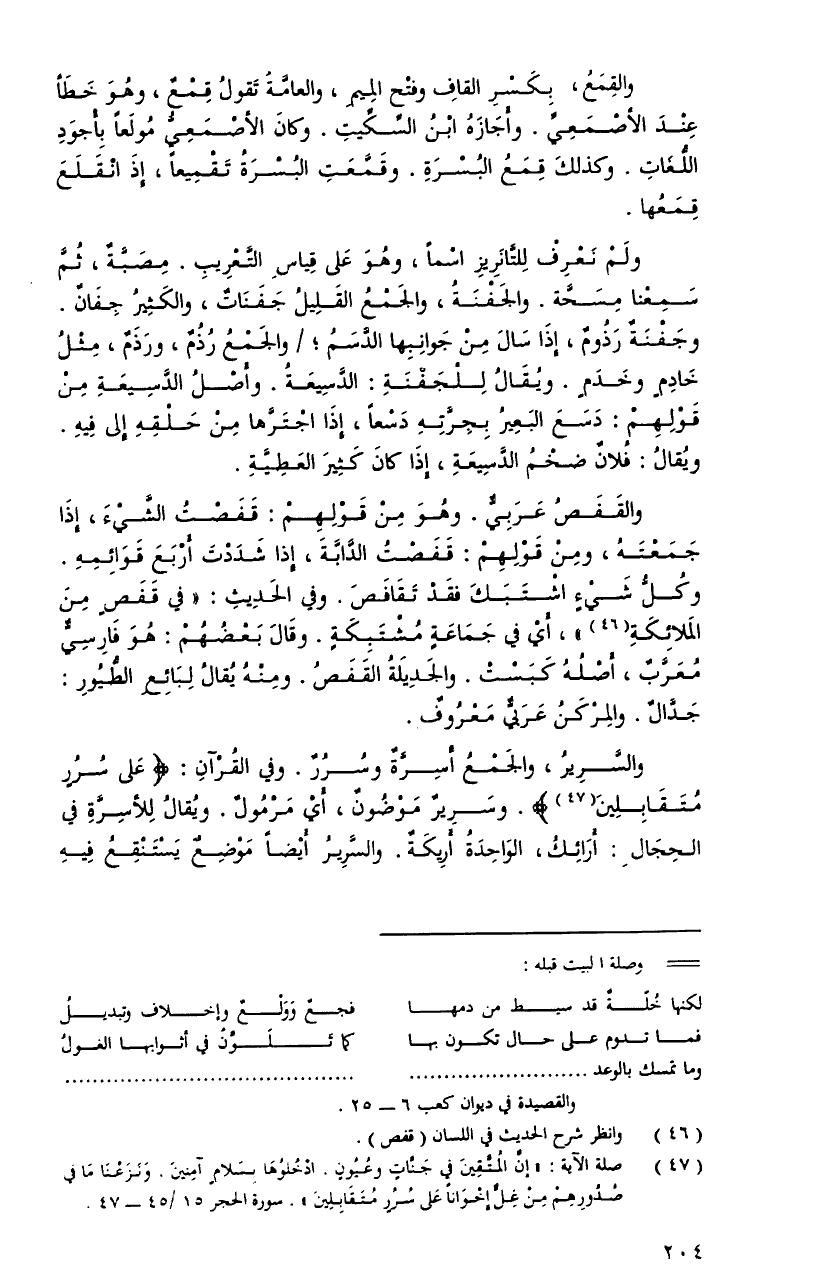 والقِمَعُ ، بِكَسْرِ القافِ وفتْحِ المِيمِ ، والعامَّةُ تَقولُ قِمْعٌ ، وهُوَ خَطَأٌ
عِنْدَ الأصْمَعِيِّ . وأَجَازَهُ ابْنُ السِّكِّيتِ . وكانَ الأصْمَعِيُّ مُولَعاً بأَجوَدِ
اللُّغَاتِ . وكذلكَ قِمَعُ البُسْرَةِ . وقَمَّعَتِ البُسْرَةُ تَقْمِيعاً ، إذَ انْقَلَعَ
قِمَعُها .
ولَمْ نَعْرِفْ لِلتَّانَرِيزِ اسْماً ، وهُوَ عَلى قِياسِ التَّعْرِيبِ . مِصَبَّةٌ ، ثُمَّ
سَمِعْنا مِسَحَّة . والجَفْنَةُ ، والجَمْعُ القَلِيلُ جَفَنَاتٌ ، والكَثِيرُ جِفَانٌ .
وجَفْنَةٌ رَذُومٌ ، إذَا سَالَ مِنْ جَوانِبِها الدَّسَمُ ؛ / والجَمْعُ رُذُمٌ ، ورَذَمٌ ، مِثْلُ
خَادِمٍ وخَدَمٍ . ويُقَالُ لِلْجَفْنَةِ : الدَّسِيعَةُ . وأَصْلُ الدَّسِيعَةِ مِنْ
قَوْلِهِمْ : دَسَعَ البَعِيرُ بِجِرَّتِهِ دَسْعاً ، إذَا اجْتَرَّها مِنْ حَلْقِهِ إلى فِيهِ .
ويُقالُ : فُلانٌ ضَخْمُ الدَّسِيعَةِ ، إذَا كانَ كَثِيرَ العَطِيَّةِ .
والقَفَصُ عَرَبِيٌّ . وهُوَ مِنْ قَوْلِهِمْ : قَفَصْتُ الشَّيْءَ ، إذَا
جَمَعْتَهُ ، ومِنْ قَوْلِهِمْ : قَفَصْتُ الدَّابَّةَ ، إذا شَدَدْتَ أَرْبَعَ قَوَائِمِهِ .
وكُلُّ شَيْءٍ اشْتَبَكَ فقَدْ تَقَافَصَ . وفي الحَدِيثِ : « في قَفَصٍ مِنَ
المَلائِكَةِ(٤٦) » ، أيْ في جَمَاعَةٍ مُشْتَبِكَةٍ . وقَالَ بَعْضُهُمْ : هُوَ فَارِسِيٌّ
مُعَرَّبٌ ، أَصْلُهُ كَبَسْتْ . والجَدِيلَةُ القَفَصُ . ومِنْهُ يُقَالُ لِبَائِعِ الطُّيُورِ :
جَدَّالٌ . والمِرْكَنُ عَرَبيٌّ مَعْرُوفٌ .
والسَّرِيرُ ، والجَمْعُ أَسِرَّةٌ وسُرُرٌ . وفي القُرْآنِ : ﴿ عَلى سُرُرٍ
مُتَقَابِلِينَ(٤٧) ﴾ . وسَرِيرٌ مَوْضُونٌ ، أَيْ مَرْمُولٌ . ويُقَالُ لِلأَسِرَّةِ في
الحِجَالِ : أَرَائِكُ ، الوَاحِدَةُ أَرِيكَةٌ . والسَّرِيرُ أيْضاً مَوْضِعٌ يَسْتَنْقِعُ فِيهِ
== وصلة البيت قبله :
لكنها خُلَّةٌ قد سيط من دمها فجعٌ وَوَلْعٌ وإخلاف وتبديلُ
فما تدوم على حال تكون بها كما تَلَوَّنُ في أثوابها الغولُ
وما تمسك بالوعد .......................... ..........................................
والقصيدة في ديوان كعب ٦ – ٢٥ .
(٤٦) وانظر شرح الحديث في اللسان ( قفص ) .
(٤٧) صلة الآية : « إنَّ المُتَّقِينَ في جَنَّاتٍ وعُيُونٍ . ادْخُلُوهَا بِسَلامٍ آمِنِينَ . ونَزَعْنَا مَا في
صُدُورِهِمْ مِنْ غِلٍّ إخْوَاناً عَلى سُرُرٍ مُتَقَابِلِينَ » . سورة الحجر ١٥ /٤٥ – ٤٧ .
٢٠٤